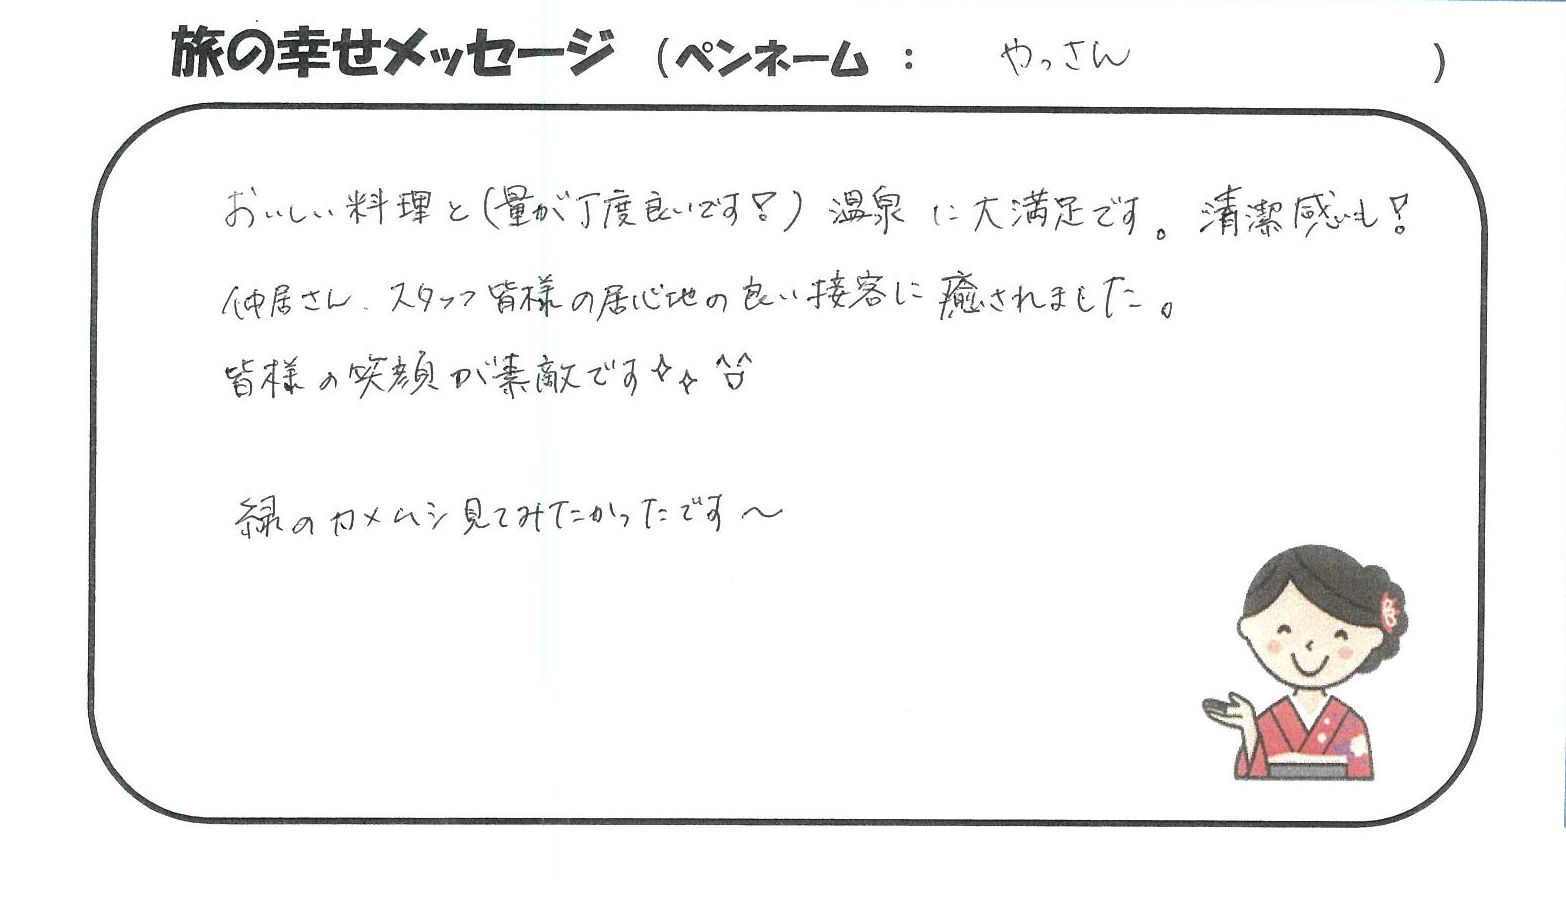 旅の幸せメッセージ (ペンネーム : やっさん )
おいしい料理と(量が丁度良いです!) 温泉に大満足です。清潔感も!
仲居さん、スタッフ皆様の居心地の良い接客に癒されました。
皆様の笑顔が素敵です
緑のカメムシ見てみたかったです～